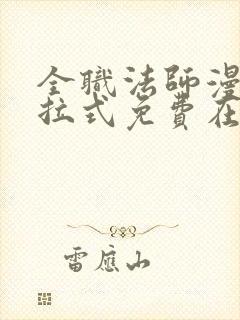 全職法師漫
拉式免費在
雷應山